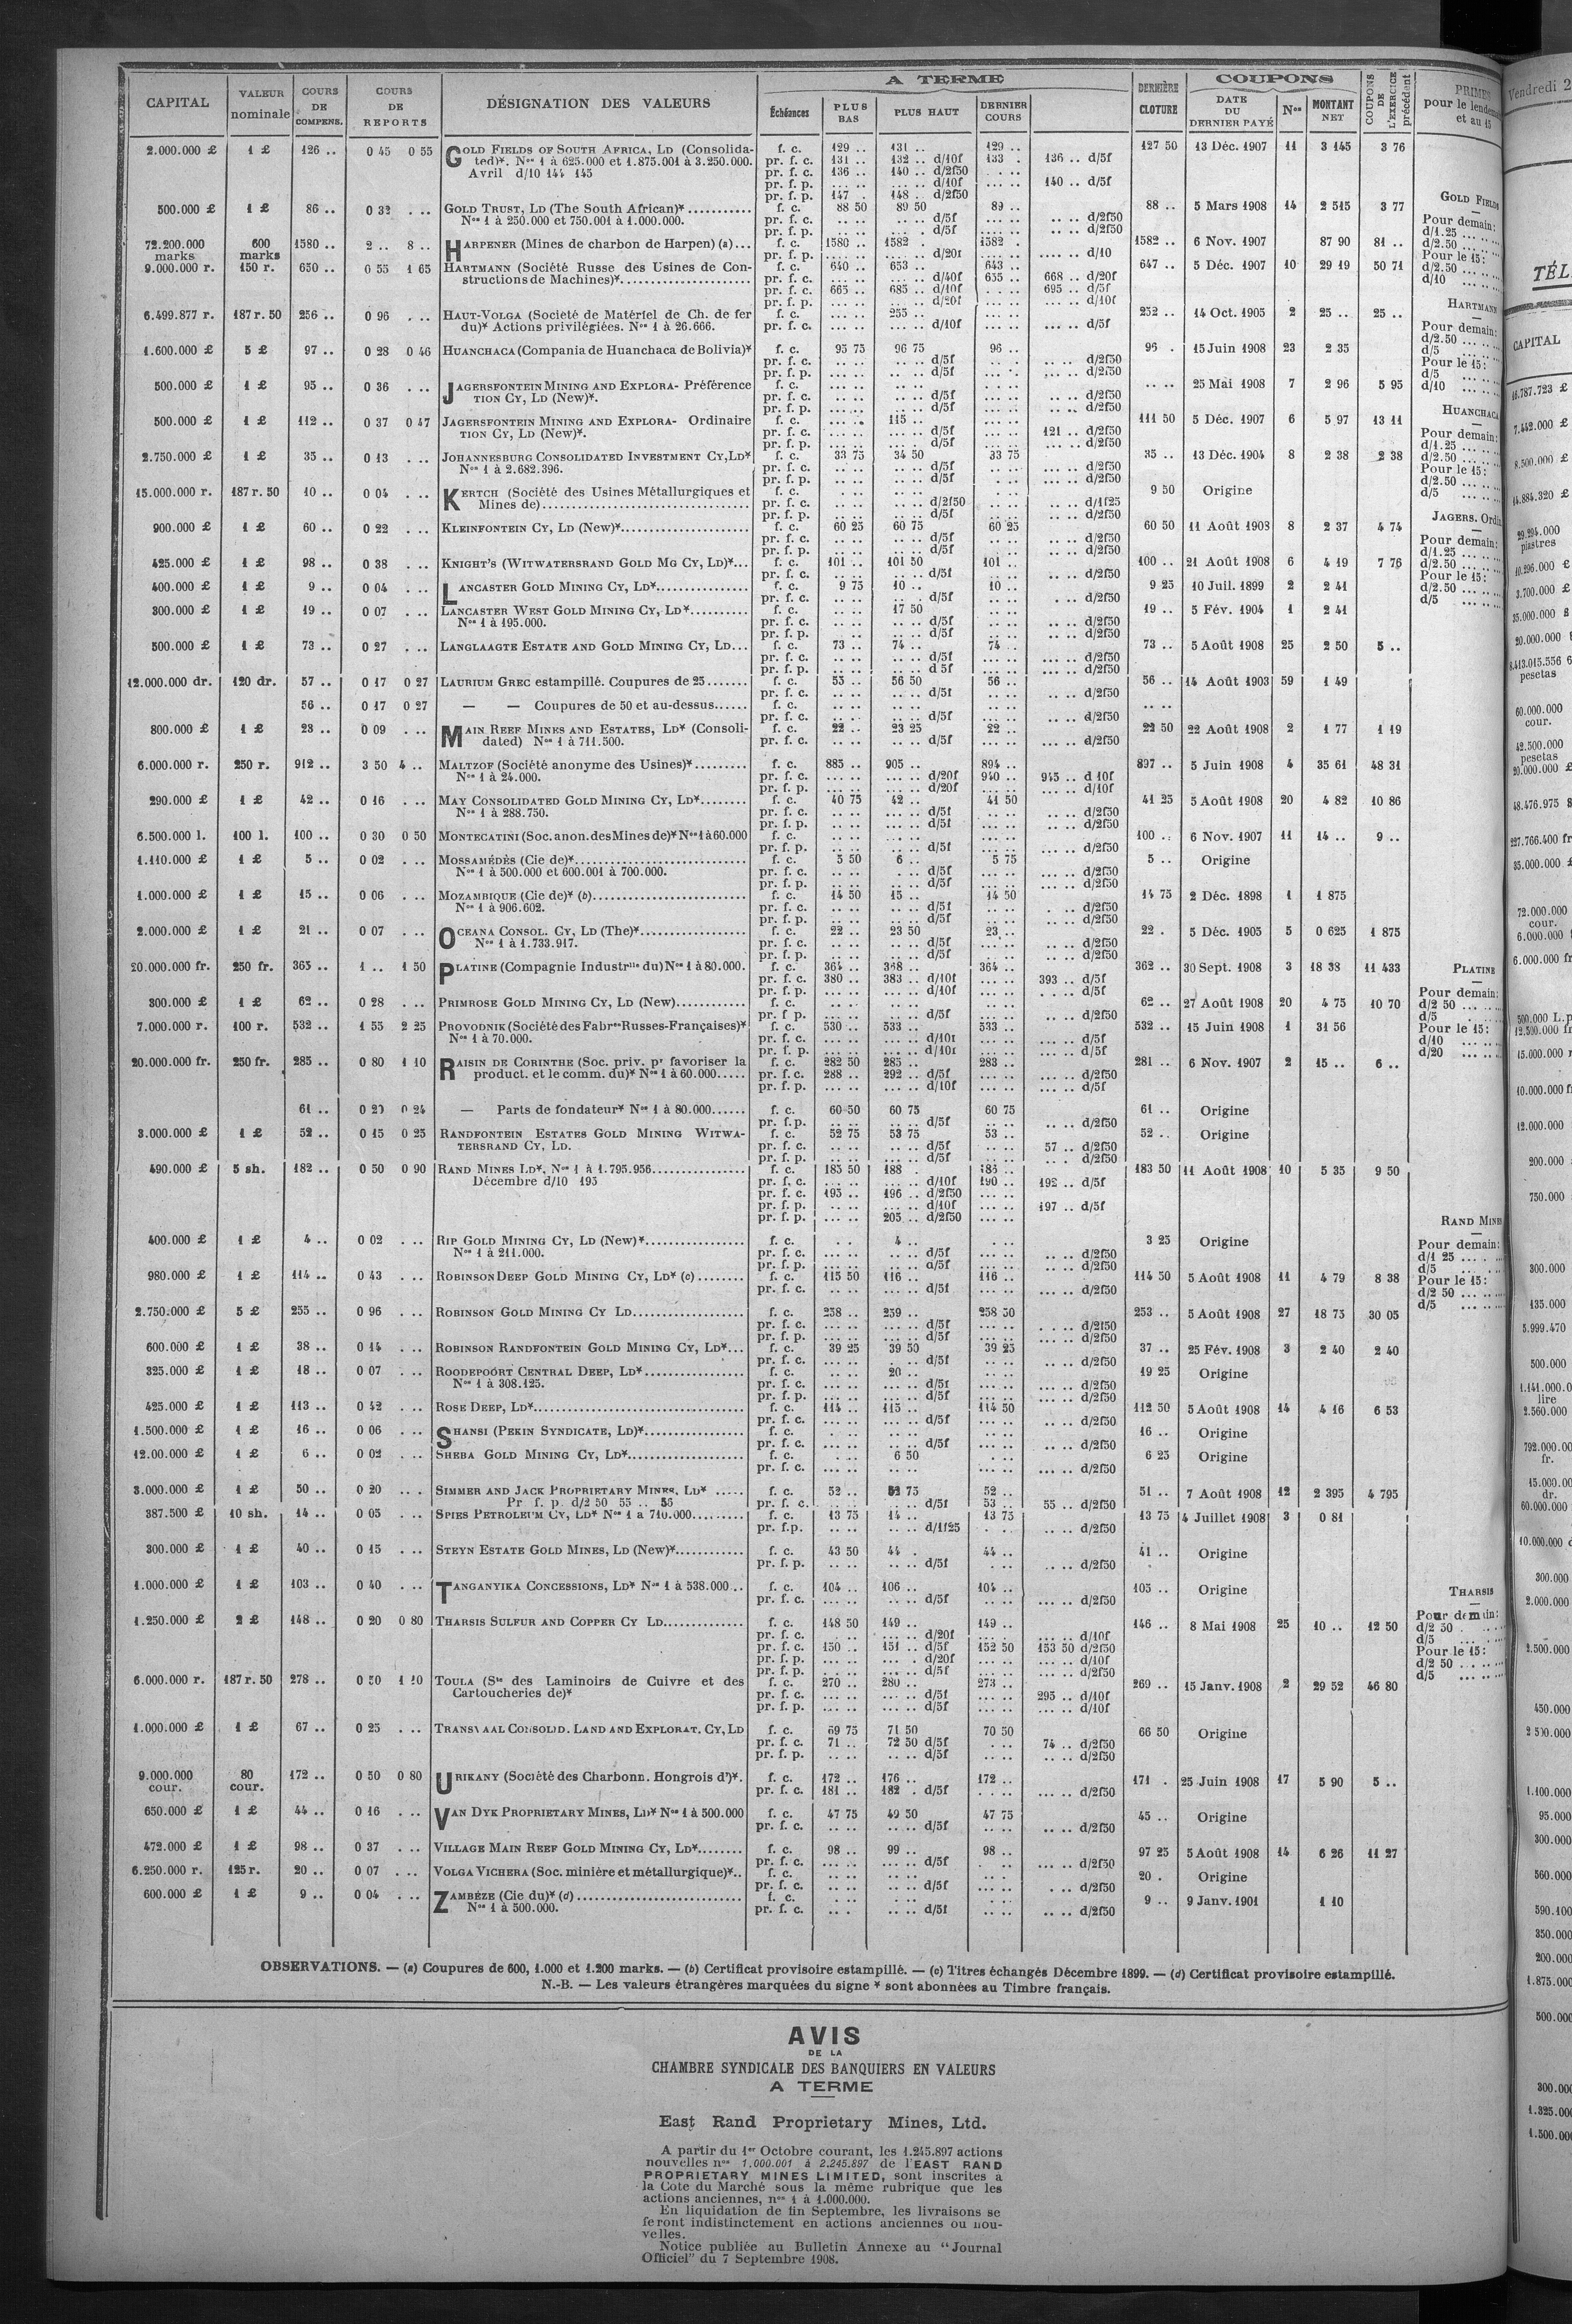 CAPITAL VALEUR nominale COURS DE COMPENS. COURS DE REPORTS DÉSIGNATION DES VALEURS A TERME Échéances PLUS BAS PLUS HAUT DERNIER COURS DERNIÈRE CLOTURE COUPONS DATE DU DERNIER PAYÉ Nos MONTANT NET COUPONS DE L'EXERCICE précédent
2.000.000 £ 1 £ 126 .. 0 45 0 55 GOLD FIELDS OF SOUTH AFRICA, LD (Consolida- f. c. 129 .. 131 .. 129 .. 127 50 13 Déc. 1907 11 3 145 3 76
ted)*. Nos 1 à 625.000 et 1.875.001 à 3.250.000. pr. f. c. 131 .. 132 .. d/10f 133 . 136 .. d/5f
Avril d/10 144 145 pr. f. c. 136 .. 140 .. d/2f50
pr. f. p. d/10f 140 .. d/5f
pr. f. p. 147 . 148 .. d/2f50
500.000 £ 1 £ 86 .. 0 32 . .. GOLD TRUST, LD (The South African)* f. c. 88 50 89 50 89 .. 88 .. 5 Mars 1908 14 2 515 3 77
Nos 1 à 250.000 et 750.001 à 1.000.000. pr. f. c. d/5f d/2f50
pr. f. p. d/5f d/2f50
72.200.000 marks 600 marks 1580 .. 2 .. 8 .. HARPENER (Mines de charbon de Harpen) (a)... f. c. 1580 .. 1582 . 1582 . 1582 .. 6 Nov. 1907 87 90 81 ..
pr. f. p. d/20f d/10
9.000.000 r. 150 r. 650 .. 0 55 1 65 HARTMANN (Société Russe des Usines de Con- f. c. 640 .. 653 .. 643 .. 647 .. 5 Déc. 1907 10 29 19 50 71
structions de Machines)*. pr. f. c. d/40f 655 .. 668 .. d/20f
pr. f. c. 665 .. 685 .. d/10f 695 .. d/5f
pr. f. p. d/20f d/10f
6.499.877 r. 187 r. 50 256 .. 0 96 . .. HAUT-VOLGA (Société de Matériel de Ch. de fer f. c. 255 .. 252 .. 14 Oct. 1905 2 25 .. 25 ..
du)* Actions privilégiées. Nos 1 à 26.666. pr. f. c. d/10f d/5f
1.600.000 £ 5 £ 97 .. 0 28 0 46 HUANCHACA (Compania de Huanchaca de Bolivia)* f. c. 95 75 96 75 96 .. 96 . 15 Juin 1908 23 2 35
pr. f. c. d/5f d/2f50
pr. f. p. d/5f d/2f50
500.000 £ 1 £ 95 .. 0 36 . .. JAGERSFONTEIN MINING AND EXPLORA- Préférence f. c. 25 Mai 1908 7 2 96 5 95
TION CY, LD (New)*. pr. f. c. d/5f d/2f50
pr. f. p. d/5f d/2f50
500.000 £ 1 £ 112 .. 0 37 0 47 JAGERSFONTEIN MINING AND EXPLORA- Ordinaire f. c. 115 .. 111 50 5 Déc. 1907 6 5 97 13 11
TION CY, LD (New)*. pr. f. c. d/5f 121 .. d/2f50
pr. f. p. d/5f d/2f50
2.750.000 £ 1 £ 35 .. 0 13 . .. JOHANNESBURG CONSOLIDATED INVESTMENT CY, LD* f. c. 33 75 34 50 33 75 35 .. 13 Déc. 1904 8 2 38 2 38
Nos 1 à 2.682.396. pr. f. c. d/5f d/2f50
pr. f. p. d/5f d/2f50
15.000.000 r. 187 r. 50 10 .. 0 04 . .. KERTCH (Société des Usines Métallurgiques et f. c. 9 50 Origine
Mines de) pr. f. c. d/2f50 d/1f25
pr. f. p. d/5f d/2f50
900.000 £ 1 £ 60 .. 0 22 . .. KLEINFONTEIN CY, LD (New)* f. c. 60 25 60 75 60 25 60 50 11 Août 1903 8 2 37 4 74
pr. f. c. d/5f d/2f50
pr. f. p. d/5f d/2f50
425.000 £ 1 £ 98 .. 0 38 . .. KNIGHT'S (WITWATERSRAND GOLD MG CY, LD)*... f. c. 101 .. 101 50 101 .. 100 .. 21 Août 1908 6 4 19 7 76
pr. f. c. d/5f d/2f50
400.000 £ 1 £ 9 .. 0 04 . .. LANCASTER GOLD MINING CY, LD* f. c. 9 75 10 .. 10 .. 9 25 10 Juil. 1899 2 2 41
pr. f. c. d/5f d/2f50
300.000 £ 1 £ 19 .. 0 07 . .. LANCASTER WEST GOLD MINING CY, LD* f. c. 17 50 19 .. 5 Fév. 1904 1 2 41
Nos 1 à 195.000. pr. f. c. d/5f d/2f50
pr. f. p. d/5f d/2f50
500.000 £ 1 £ 73 .. 0 27 . .. LANGLAAGTE ESTATE AND GOLD MINING CY, LD... f. c. 73 .. 74 .. 74 .. 73 .. 5 Août 1908 25 2 50 5 ..
pr. f. c. d/5f d/2f50
pr. f. p. d 5f d/2f50
12.000.000 dr. 120 dr. 57 .. 0 17 0 27 LAURIUM GREC estampillé. Coupures de 25 f. c. 55 .. 56 50 56 .. 56 .. 14 Août 1903 59 1 49
pr. f. c. d/5f d/2f50
56 .. 0 17 0 27 — — Coupures de 50 et au-dessus f. c.
pr. f. c. d/5f d/2f50
800.000 £ 1 £ 23 .. 0 09 . .. MAIN REEF MINES AND ESTATES, LD* (Consoli- f. c. 22 .. 23 25 22 .. 22 50 22 Août 1908 2 1 77 1 19
dated) Nos 1 à 711.500. pr. f. c. d/5f d/2f50
6.000.000 r. 250 r. 912 .. 3 50 4 .. MALTZOF (Société anonyme des Usines)* f. c. 885 .. 905 .. 894 .. 897 .. 5 Juin 1908 4 35 61 48 31
Nos 1 à 24.000. pr. f. c. d/20f 940 .. 945 .. d 10f
pr. f. p. d/20f d/10f
290.000 £ 1 £ 42 .. 0 16 . .. MAY CONSOLIDATED GOLD MINING CY, LD* f. c. 40 75 42 .. 41 50 41 25 5 Août 1908 20 4 82 10 86
Nos 1 à 288.750. pr. f. c. d/5f d/2f50
pr. f. p. d/5f d/2f50
6.500.000 l. 100 l. 100 .. 0 30 0 50 MONTECATINI (Soc. anon. des Mines de)* Nos 1 à 60.000 f. c. 100 .. 6 Nov. 1907 11 14 .. 9 ..
pr. f. p. d/5f d/2f50
1.110.000 £ 1 £ 5 .. 0 02 . .. MOSSAMÉDÈS (Cie de)* f. c. 5 50 6 .. 5 75 5 .. Origine
Nos 1 à 500.000 et 600.001 à 700.000. pr. f. c. d/5f d/2f50
pr. f. p. d/5f d/2f50
1.000.000 £ 1 £ 15 .. 0 06 . .. MOZAMBIQUE (Cie de)* (b) f. c. 14 50 15 .. 14 50 14 75 2 Déc. 1898 1 1 875
Nos 1 à 906.602. pr. f. c. d/5f d/2f50
pr. f. p. d/5f d/2f50
2.000.000 £ 1 £ 21 .. 0 07 . .. OCEANA CONSOL. CY, LD (The)* f. c. 22 .. 23 50 23 .. 22 . 5 Déc. 1905 5 0 625 1 875
Nos 1 à 1.733.917. pr. f. c. d/5f d/2f50
pr. f. p. d/5f d/2f50
20.000.000 fr. 250 fr. 365 .. 1 .. 1 50 PLATINE (Compagnie Industrlle du) Nos 1 à 80.000. f. c. 364 .. 368 .. 364 .. 362 .. 30 Sept. 1908 3 18 38 11 433
pr. f. c. 380 .. 383 .. d/10f 393 .. d/5f
pr. f. p. d/10f d/5f
300.000 £ 1 £ 62 .. 0 28 . .. PRIMROSE GOLD MINING CY, LD (New) f. c. 62 .. 27 Août 1908 20 4 75 10 70
pr. f p. d/5f d/2f50
7.000.000 r. 100 r. 532 .. 1 55 2 25 PROVODNIK (Société des Fabres Russes-Françaises)* f. c. 530 .. 533 .. 533 .. 532 .. 15 Juin 1908 1 31 56
Nos 1 à 70.000. pr. f. c. d/10f d/5f
pr. f. p. d/10f d/5f
20.000.000 fr. 250 fr. 285 .. 0 80 1 10 RAISIN DE CORINTHE (Soc. priv. pr favoriser la f. c. 282 50 285 .. 283 .. 281 .. 6 Nov. 1907 2 15 .. 6 ..
product. et le comm. du)* Nos 1 à 60.000 pr. f. c. 288 .. 292 .. d/5f d/2f50
pr. f. p. d/10f d/5f
61 .. 0 20 0 24 — Parts de fondateur* Nos 1 à 80.000 f. c. 60 50 60 75 60 75 61 .. Origine
pr. f.p. d/5f d/2f50
3.000.000 £ 1 £ 52 .. 0 15 0 25 RANDFONTEIN ESTATES GOLD MINING WITWA- f. c. 52 75 53 75 53 .. 52 .. Origine
TERSRAND CY, LD. pr. f. c. d/5f 57 .. d/2f50
pr. f. p. d/5f d/2f50
490.000 £ 5 sh. 182 .. 0 50 0 90 RAND MINES LD*. Nos 1 à 1.795.956 f. c. 185 50 188 . 185 .. 183 50 11 Août 1908 10 5 35 9 50
Décembre d/10 195 pr. f. c. d/10f 190 .. 192 .. d/5f
pr. f. c. 195 .. 196 .. d/2f50
pr. f. p. d/10f 197 .. d/5f
pr. f. p. 205 .. d/2f50
400.000 £ 1 £ 4 .. 0 02 . .. RIP GOLD MINING CY, LD (New)* f. c. 4 .. 3 25 Origine
Nos 1 à 211.000. pr. f. c. d/5f d/2f50
pr. f. p. d/5f d/2f50
980.000 £ 1 £ 114 .. 0 43 . .. ROBINSON DEEP GOLD MINING CY, LD* (c) f. c. 115 50 116 .. 116 .. 114 50 5 Août 1908 11 4 79 8 38
pr. f. c. d/5f d/2f50
2.750.000 £ 5 £ 255 .. 0 96 . .. ROBINSON GOLD MINING CY LD f. c. 258 .. 259 .. 258 50 253 .. 5 Août 1908 27 18 75 30 05
pr. f. c. d/5f d/2f50
pr. f. p. d/5f d/2f50
600.000 £ 1 £ 38 .. 0 14 . .. ROBINSON RANDFONTEIN GOLD MINING CY, LD*... f. c. 39 25 39 50 39 25 37 .. 25 Fév. 1908 3 2 40 2 40
pr. f. c. d/5f d/2f50
325.000 £ 1 £ 18 .. 0 07 . .. ROODEPOORT CENTRAL DEEP, LD* f. c. 20 .. 19 25 Origine
Nos 1 à 308.125. pr. f. c. d/5f d/2f50
pr. f. p. d/5f d/2f50
425.000 £ 1 £ 113 .. 0 42 . .. ROSE DEEP, LD* f. c. 114 .. 115 .. 114 50 112 50 5 Août 1908 14 4 16 6 53
pr. f. c. d/5f d/2f50
1.500.000 £ 1 £ 16 .. 0 06 . .. SHANSI (PEKIN SYNDICATE, LD)* f. c. 16 .. Origine
pr. f. c. d/5f d/2f50
12.00.000 £ 1 £ 6 .. 0 02 . .. SHEBA GOLD MINING CY, LD* f. c. 6 50 6 25 Origine
pr. f. c. d/2f50
3.000.000 £ 1 £ 50 .. 0 20 . .. SIMMER AND JACK PROPRIETARY MINES, LD* f. c. 52 .. 52 75 52 .. 51 .. 7 Août 1908 12 2 395 4 795
Pr f. p. d/2 50 55 .. 56 pr. f. c. d/5f 53 .. 55 .. d/2f50
387.500 £ 10 sh. 14 .. 0 05 . .. SPIES PETROLEUM CY, LD* Nos 1 à 710.000 f. c. 13 75 14 .. 13 75 13 75 4 Juillet 1908 3 0 81
pr. f.p. d/1f25 d/2f50
300.000 £ 1 £ 40 .. 0 15 . .. STEYN ESTATE GOLD MINES, LD (New)* f. c. 43 50 44 . 44 .. 41 .. Origine
pr. f. p. d/5f d/2f50
1.000.000 £ 1 £ 103 .. 0 40 . .. TANGANYIKA CONCESSIONS, LD* Nos 1 à 538.000 .. f. c. 104 .. 106 .. 104 .. 105 .. Origine
pr. f. c. d/5f d/2f50
1.250.000 £ 2 £ 148 .. 0 20 0 80 THARSIS SULFUR AND COPPER CY LD f. c. 148 50 149 .. 149 .. 146 .. 8 Mai 1908 25 10 .. 12 50
pr. f. c. d/20f d/10f
pr. f. c. 150 .. 151 .. d/5f 152 50 153 50 d/2f50
pr. f. p. d/20f d/10f
pr. f. p. d/5f d/2f50
6.000.000 r. 187 r. 50 278 .. 0 50 1 20 TOULA (Sté des Laminoirs de Cuivre et des f. c. 270 .. 280 .. 273 .. 269 .. 15 Janv. 1908 2 29 52 46 80
Cartoucheries de)* pr. f. c. d/5f 295 .. d/10f
pr. f. p. d/5f d/10f
1.000.000 £ 1 £ 67 .. 0 25 . .. TRANSVAAL CONSOLID. LAND AND EXPLORAT. CY, LD f. c. 69 75 71 50 70 50 66 50 Origine
pr. f. c. 71 .. 72 50 d/5f 74 .. d/2f50
pr. f. p. d/5f d/2f50
9.000.000 cour. 80 cour. 172 .. 0 50 0 80 URIKANY (Société des Charbonn. Hongrois d')*. f. c. 172 .. 176 .. 172 .. 171 . 25 Juin 1908 17 5 90 5 ..
pr. f. c. 181 .. 182 . d/5f d/2f50
650.000 £ 1 £ 44 .. 0 16 . .. VAN DYK PROPRIETARY MINES, LD* Nos 1 à 500.000 f. c. 47 75 49 50 47 75 45 .. Origine
pr. f. c. d/5f d/2f50
472.000 £ 1 £ 98 .. 0 37 . .. VILLAGE MAIN REEF GOLD MINING CY, LD* f. c. 98 .. 99 .. 98 .. 97 25 5 Août 1908 14 6 26 11 27
pr. f. c. d/5f d/2f50
6.250.000 r. 125 r. 20 .. 0 07 . .. VOLGA VICHERA (Soc. minière et métallurgique)*.. f. c. 20 . Origine
pr. f. c. d/5f d/2f50
600.000 £ 1 £ 9 .. 0 04 . .. ZAMBÈZE (Cie du)* (d) f. c. 9 .. 9 Janv. 1901 1 10
Nos 1 à 500.000. pr. f. c. d/5f d/2f50
PRIMES
pour le lendemain
et au 15
GOLD FIELDS
Pour demain:
d/1.25
d/2.50
Pour le 15:
d/2.50
d/10
HARTMANN
Pour demain:
d/2.50
d/5
Pour le 15:
d/5
d/10
HUANCHACA
Pour demain:
d/1.25
d/2.50
Pour le 15:
d/2.50
d/5
JAGERS. Ordin
Pour demain:
d/1.25
d/2.50
Pour le 15:
d/2.50
d/5
PLATINE
Pour demain:
d/2 50
d/5
Pour le 15:
d/10
d/20
RAND MINES
Pour demain:
d/1 25
d/5
Pour le 15:
d/2 50
d/5
THARSIS
Pour demain:
d/2 50
d/5
Pour le 15:
d/2 50
d/5
OBSERVATIONS. — (a) Coupures de 600, 1.000 et 1.200 marks. — (b) Certificat provisoire estampillé. — (c) Titres échangés Décembre 1899. — (d) Certificat provisoire estampillé.
N.-B. — Les valeurs étrangères marquées du signe * sont abonnées au Timbre français.
AVIS
DE LA
CHAMBRE SYNDICALE DES BANQUIERS EN VALEURS
A TERME
East Rand Proprietary Mines, Ltd.
A partir du 1er Octobre courant, les 1.245.897 actions
nouvelles nos 1.000.001 à 2.245.897 de l'EAST RAND
PROPRIETARY MINES LIMITED, sont inscrites à
la Cote du Marché sous la même rubrique que les
actions anciennes, nos 1 à 1.000.000.
En liquidation de fin Septembre, les livraisons se
feront indistinctement en actions anciennes ou nou-
velles.
Notice publiée au Bulletin Annexe au "Journal
Officiel" du 7 Septembre 1908.
Vendredi 2
TÉL
CAPITAL
16.787.723 £
7.442.000 £
8.500.000 £
14.884.320 £
29.294.000
piastres
10.296.000 £
3.700.000 £
35.000.000
20.000.000
8.413.015.556
pesetas
60.000.000
cour.
42.500.000
pesetas
20.000.000 £
48.476.975
227.766.400 fr
35.000.000
72.000.000
cour.
6.000.000
6.000.000 fr
500.000 L.
12.500.000 fr
15.000.000
10.000.000 f
12.000.000
200.000
750.000
300.000
135.000
5.999.470
500.000
1.141.000.0
lire
2.560.000
792.000.00
fr.
15.000.00
dr.
60.000.000
10.000.000
300.000
2.000.000
2.500.000
450.000
2 500.000
1.100.000
95.000
300.000
560.000
590.100
350.000
200.000
1.875.000
500.000
300.00
1.325.00
1.500.00